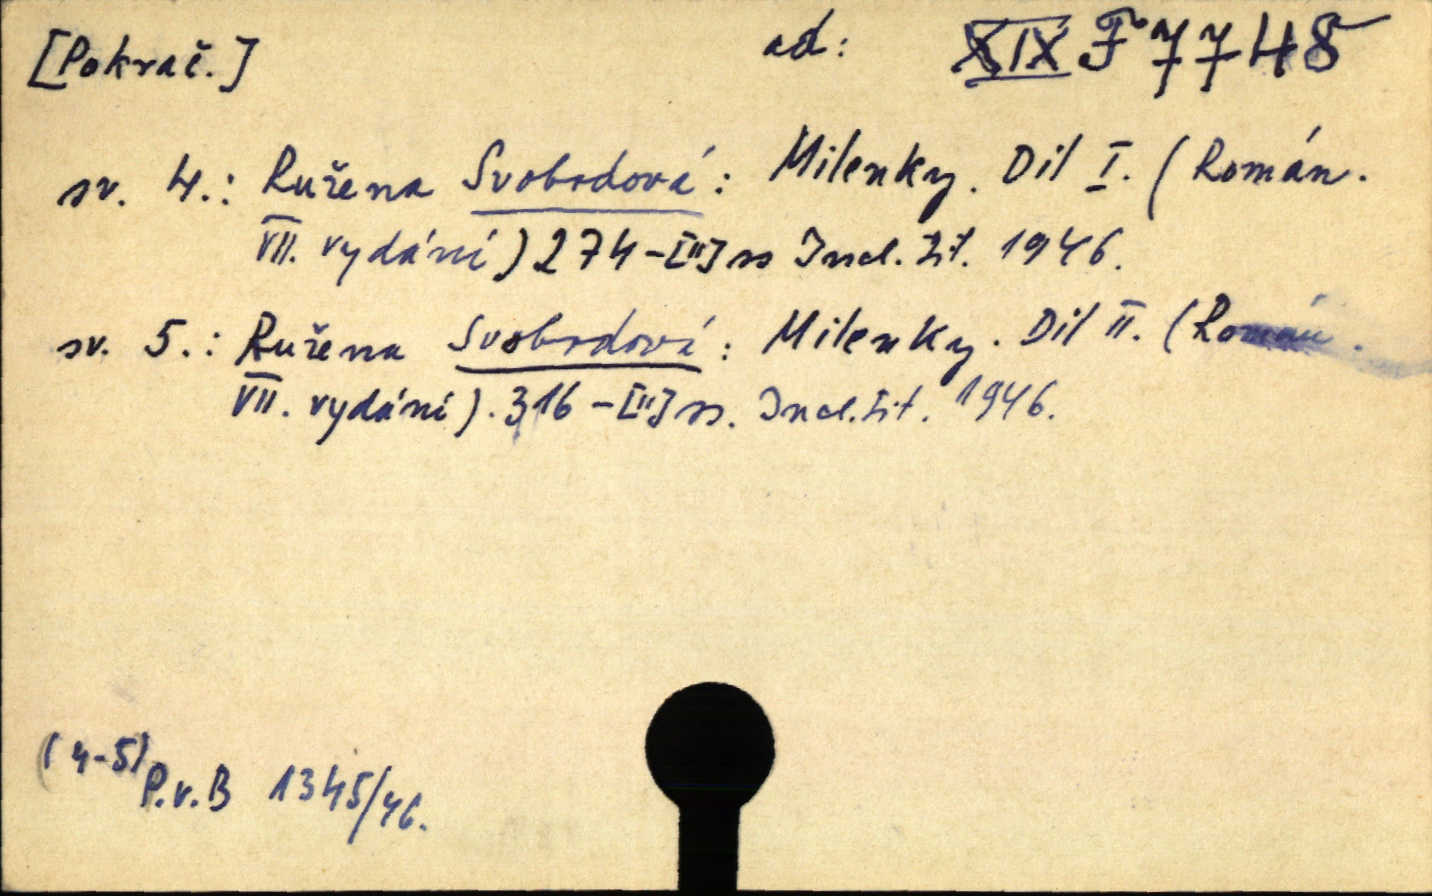 [Pokrač.] ad: XIX F 7748
sv. 4.: Ružena Svobodová: Milenky. Dil I. (Román.
VII. vydání) 274-[II] ss Incl. tit. 1946.
sv. 5.: Ružena Svobodová: Milenky. Dil II. (Román.
VII. vydání). 316-[II] ss. Incl. tit. 1946.
(4-5) P.v.B 1345/46.